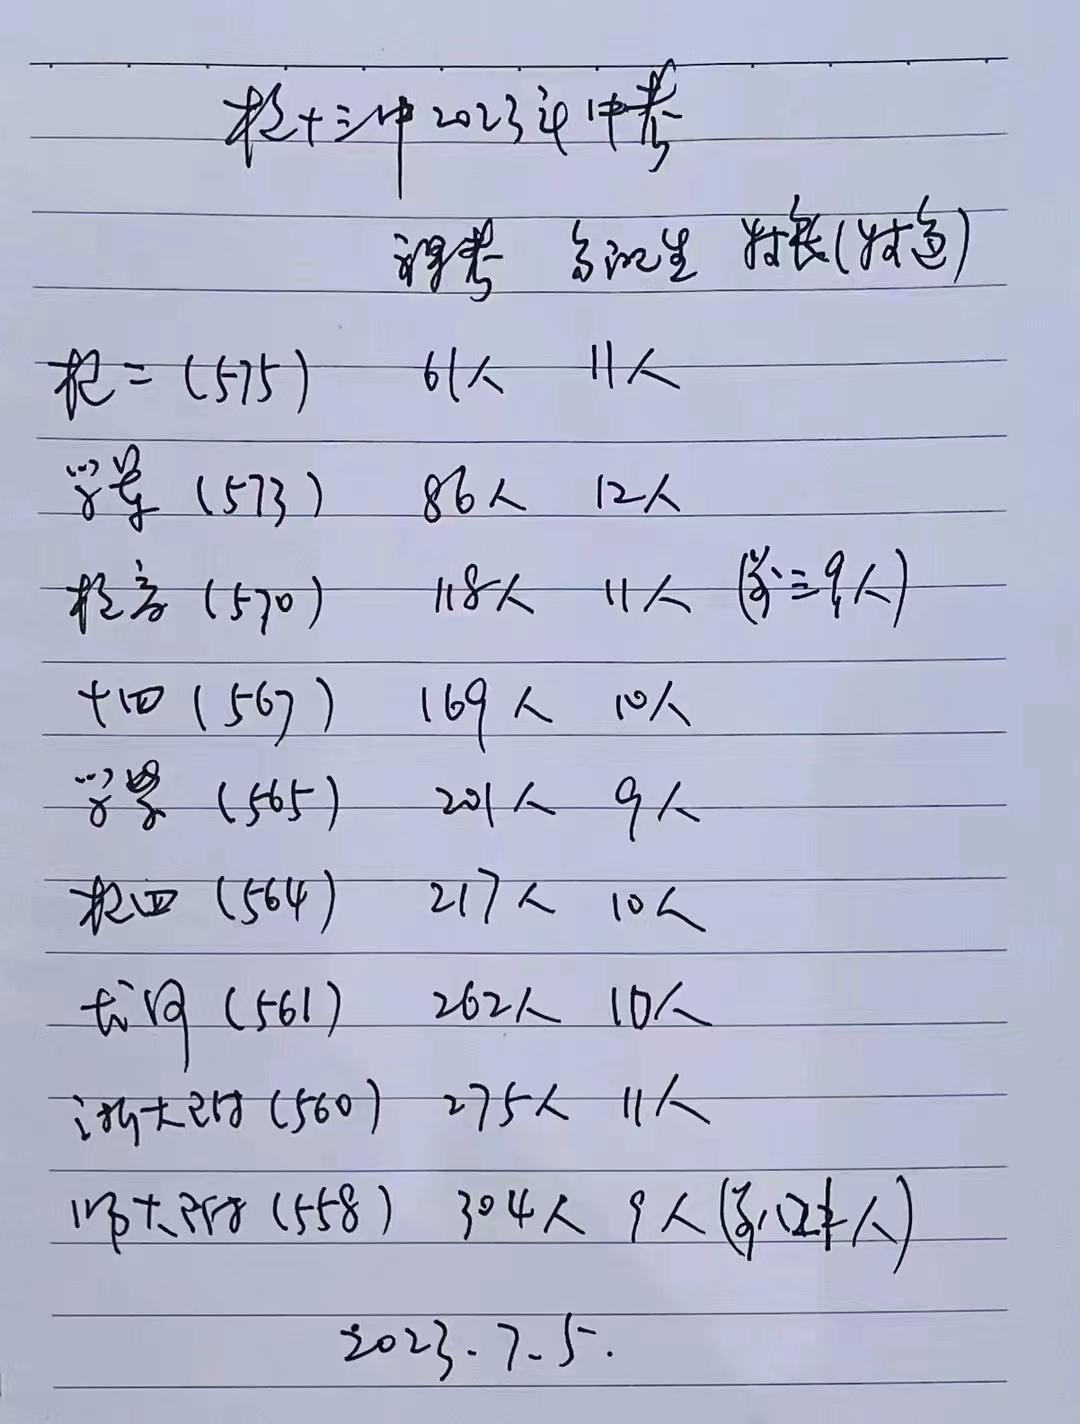 杭十三中2023年中考
裸考 分配生 特长(特色)
杭二(575) 61人 11人
学军(573) 86人 12人
杭高(570) 118人 11人 (含三9人)
十四(567) 169人 10人
学紫(565) 201人 9人
杭四(564) 217人 10人
长河(561) 262人 10人
浙大附(560) 275人 11人
师大附(558) 304人 9人 (人)
2023.7.5.